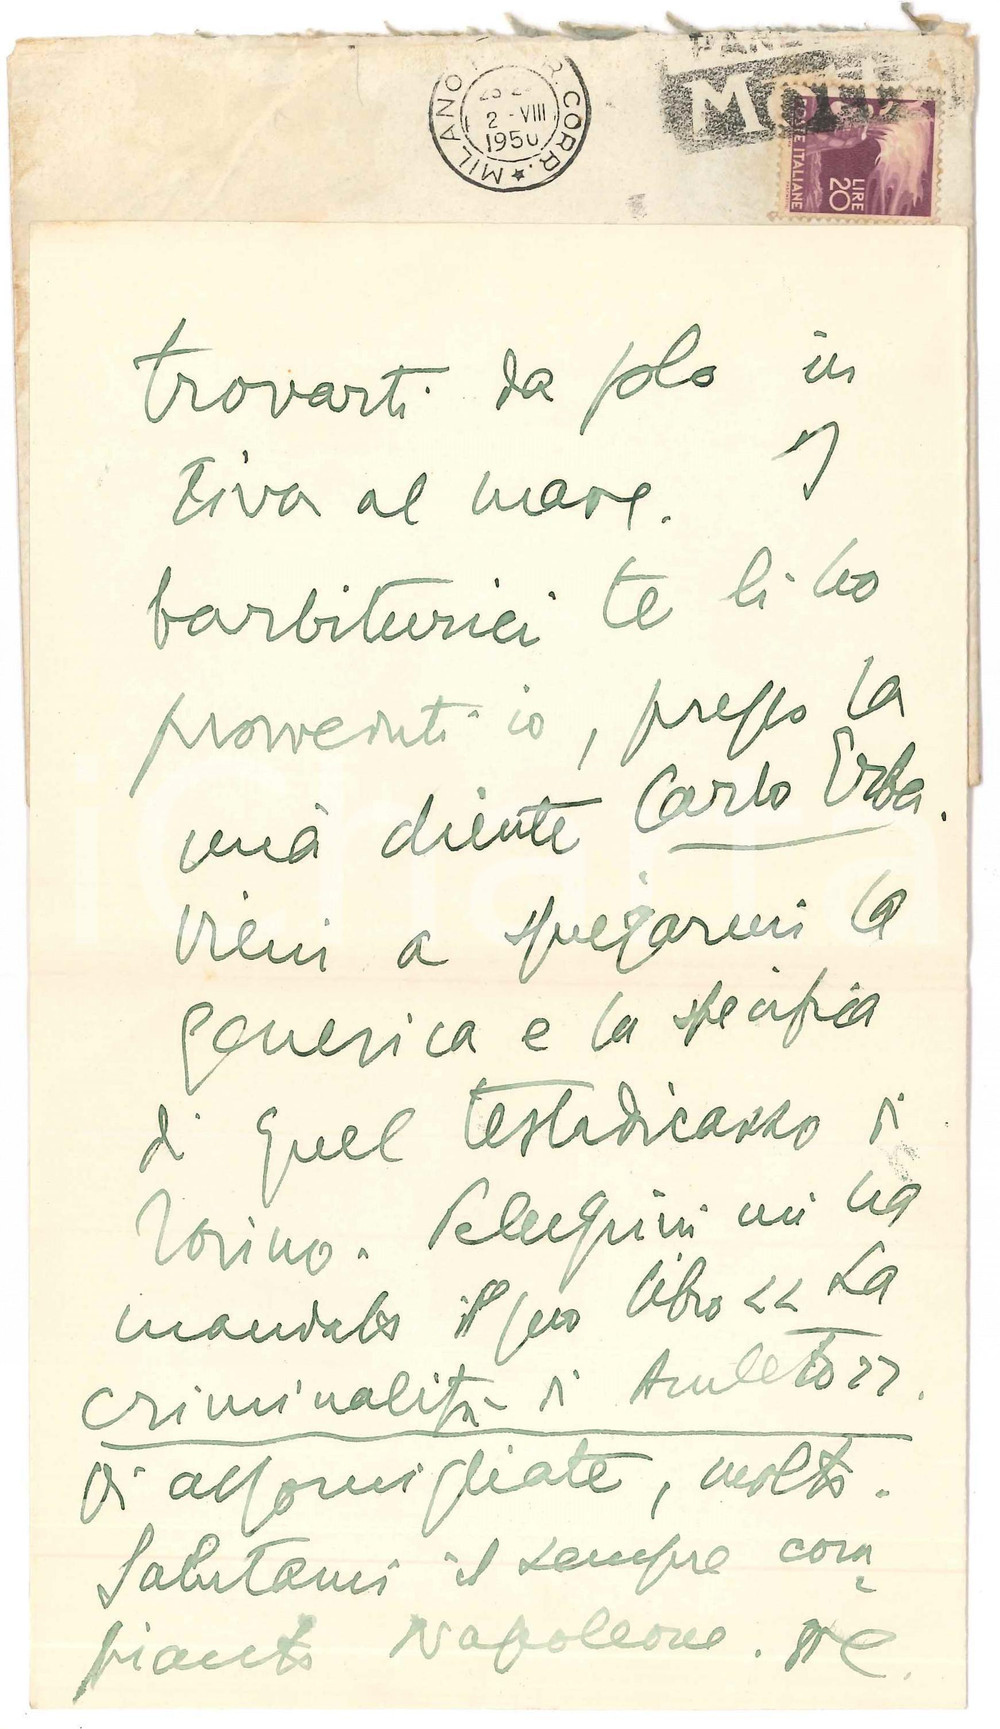 MILANO R. CORR.
2-VIII
1950
LIRE
20
ITALIANE
trovarti da solo in
riva al mare. I
barbiturici te li ho
provveduti io, presso la
mia cliente Carlo Erba.
Vieni a spiegarmi la
generica e la specifica
di quel testadicazzo di
Torino. Pellegrini mi ha
mandato il suo libro << La
criminalità di Amleto >>.
Vi assomigliate, molto.
Salutami il sempre com=
pianto Napoleone.